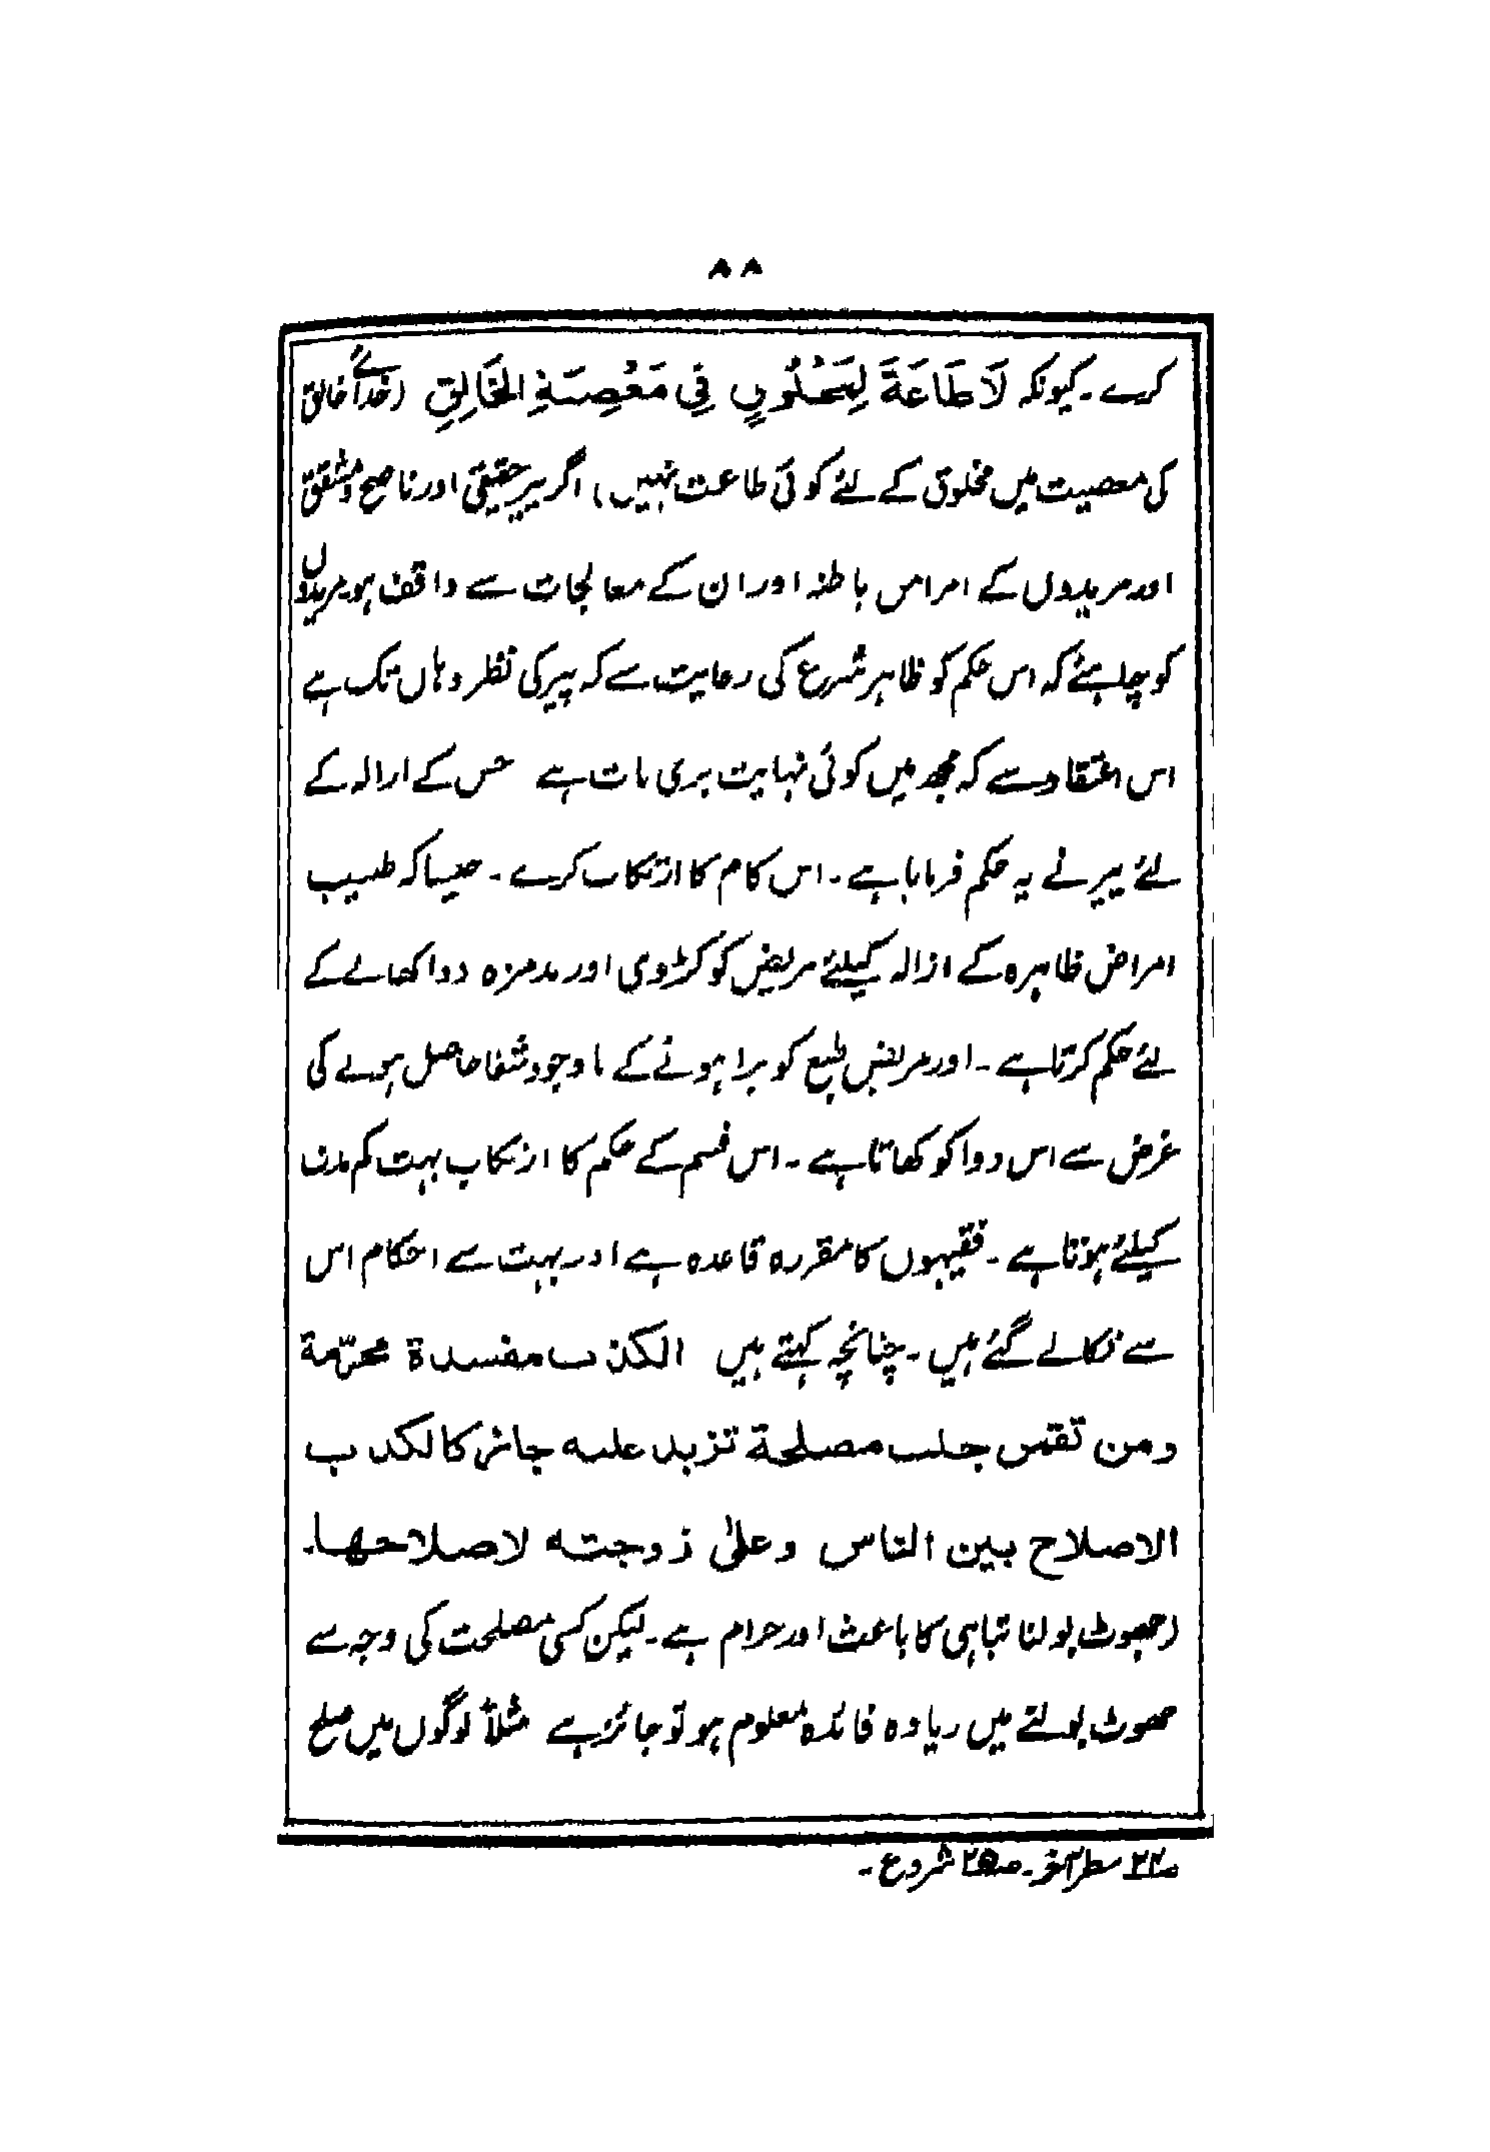 ۸۸
کرے ۔ کیونکہ لَا طَاعَةَ لِمَخْلُوقٍ فِي مَعْصِيَةِ الْخَالِقِ (خدائے خالق
کی معصیت میں مخلوق کے لئے کوئی طاعت نہیں) اگر پیر حقیقی اور ناصح و مشفق
اور مریدوں کے امراض باطنہ اور ان کے معالجات سے واقف ہو مریدوں
کو چاہئے کہ اس حکم کو ظاہر شرع کی رعایت سے کہ پیر کی نظر وہاں تک ہے
اس اعتقاد سے کہ مجھ میں کوئی نہایت بری بات ہے جس کے ازالہ کے
لئے پیر نے یہ حکم فرمایا ہے ۔ اس کام کا ارتکاب کرے ۔ جیسا کہ طبیب
امراض ظاہرہ کے ازالہ کیلئے مریض کو کڑوی اور بدمزہ دوا کھانے کے
لئے حکم کرتا ہے ۔ اور مریض طبع کو برا ہونے کے باوجود شفا حاصل ہونے کی
غرض سے اس دوا کو کھاتا ہے ۔ اس قسم کے حکم کا ارتکاب بہت کم مدت
کیلئے ہوتا ہے ۔ فقیہوں کا مقررہ قاعدہ ہے اور بہت سے احکام اس
سے نکالے گئے ہیں ۔ چنانچہ کہتے ہیں الکذب مفسدة محرّمة
ومن تقس جلب مصلحة تزید علیه جائز کالکذب
الاصلاح بین الناس وعلیٰ زوجته لاصلاحها۔
(جھوٹ بولنا تباہی کا باعث اور حرام ہے ۔ لیکن کسی مصلحت کی وجہ سے
جھوٹ بولنے میں زیادہ فائدہ معلوم ہو تو جائز ہے مثلاً لوگوں میں صلح
صـ۲۴ سطر آخر ۔ صـ۲۵ شروع ۔